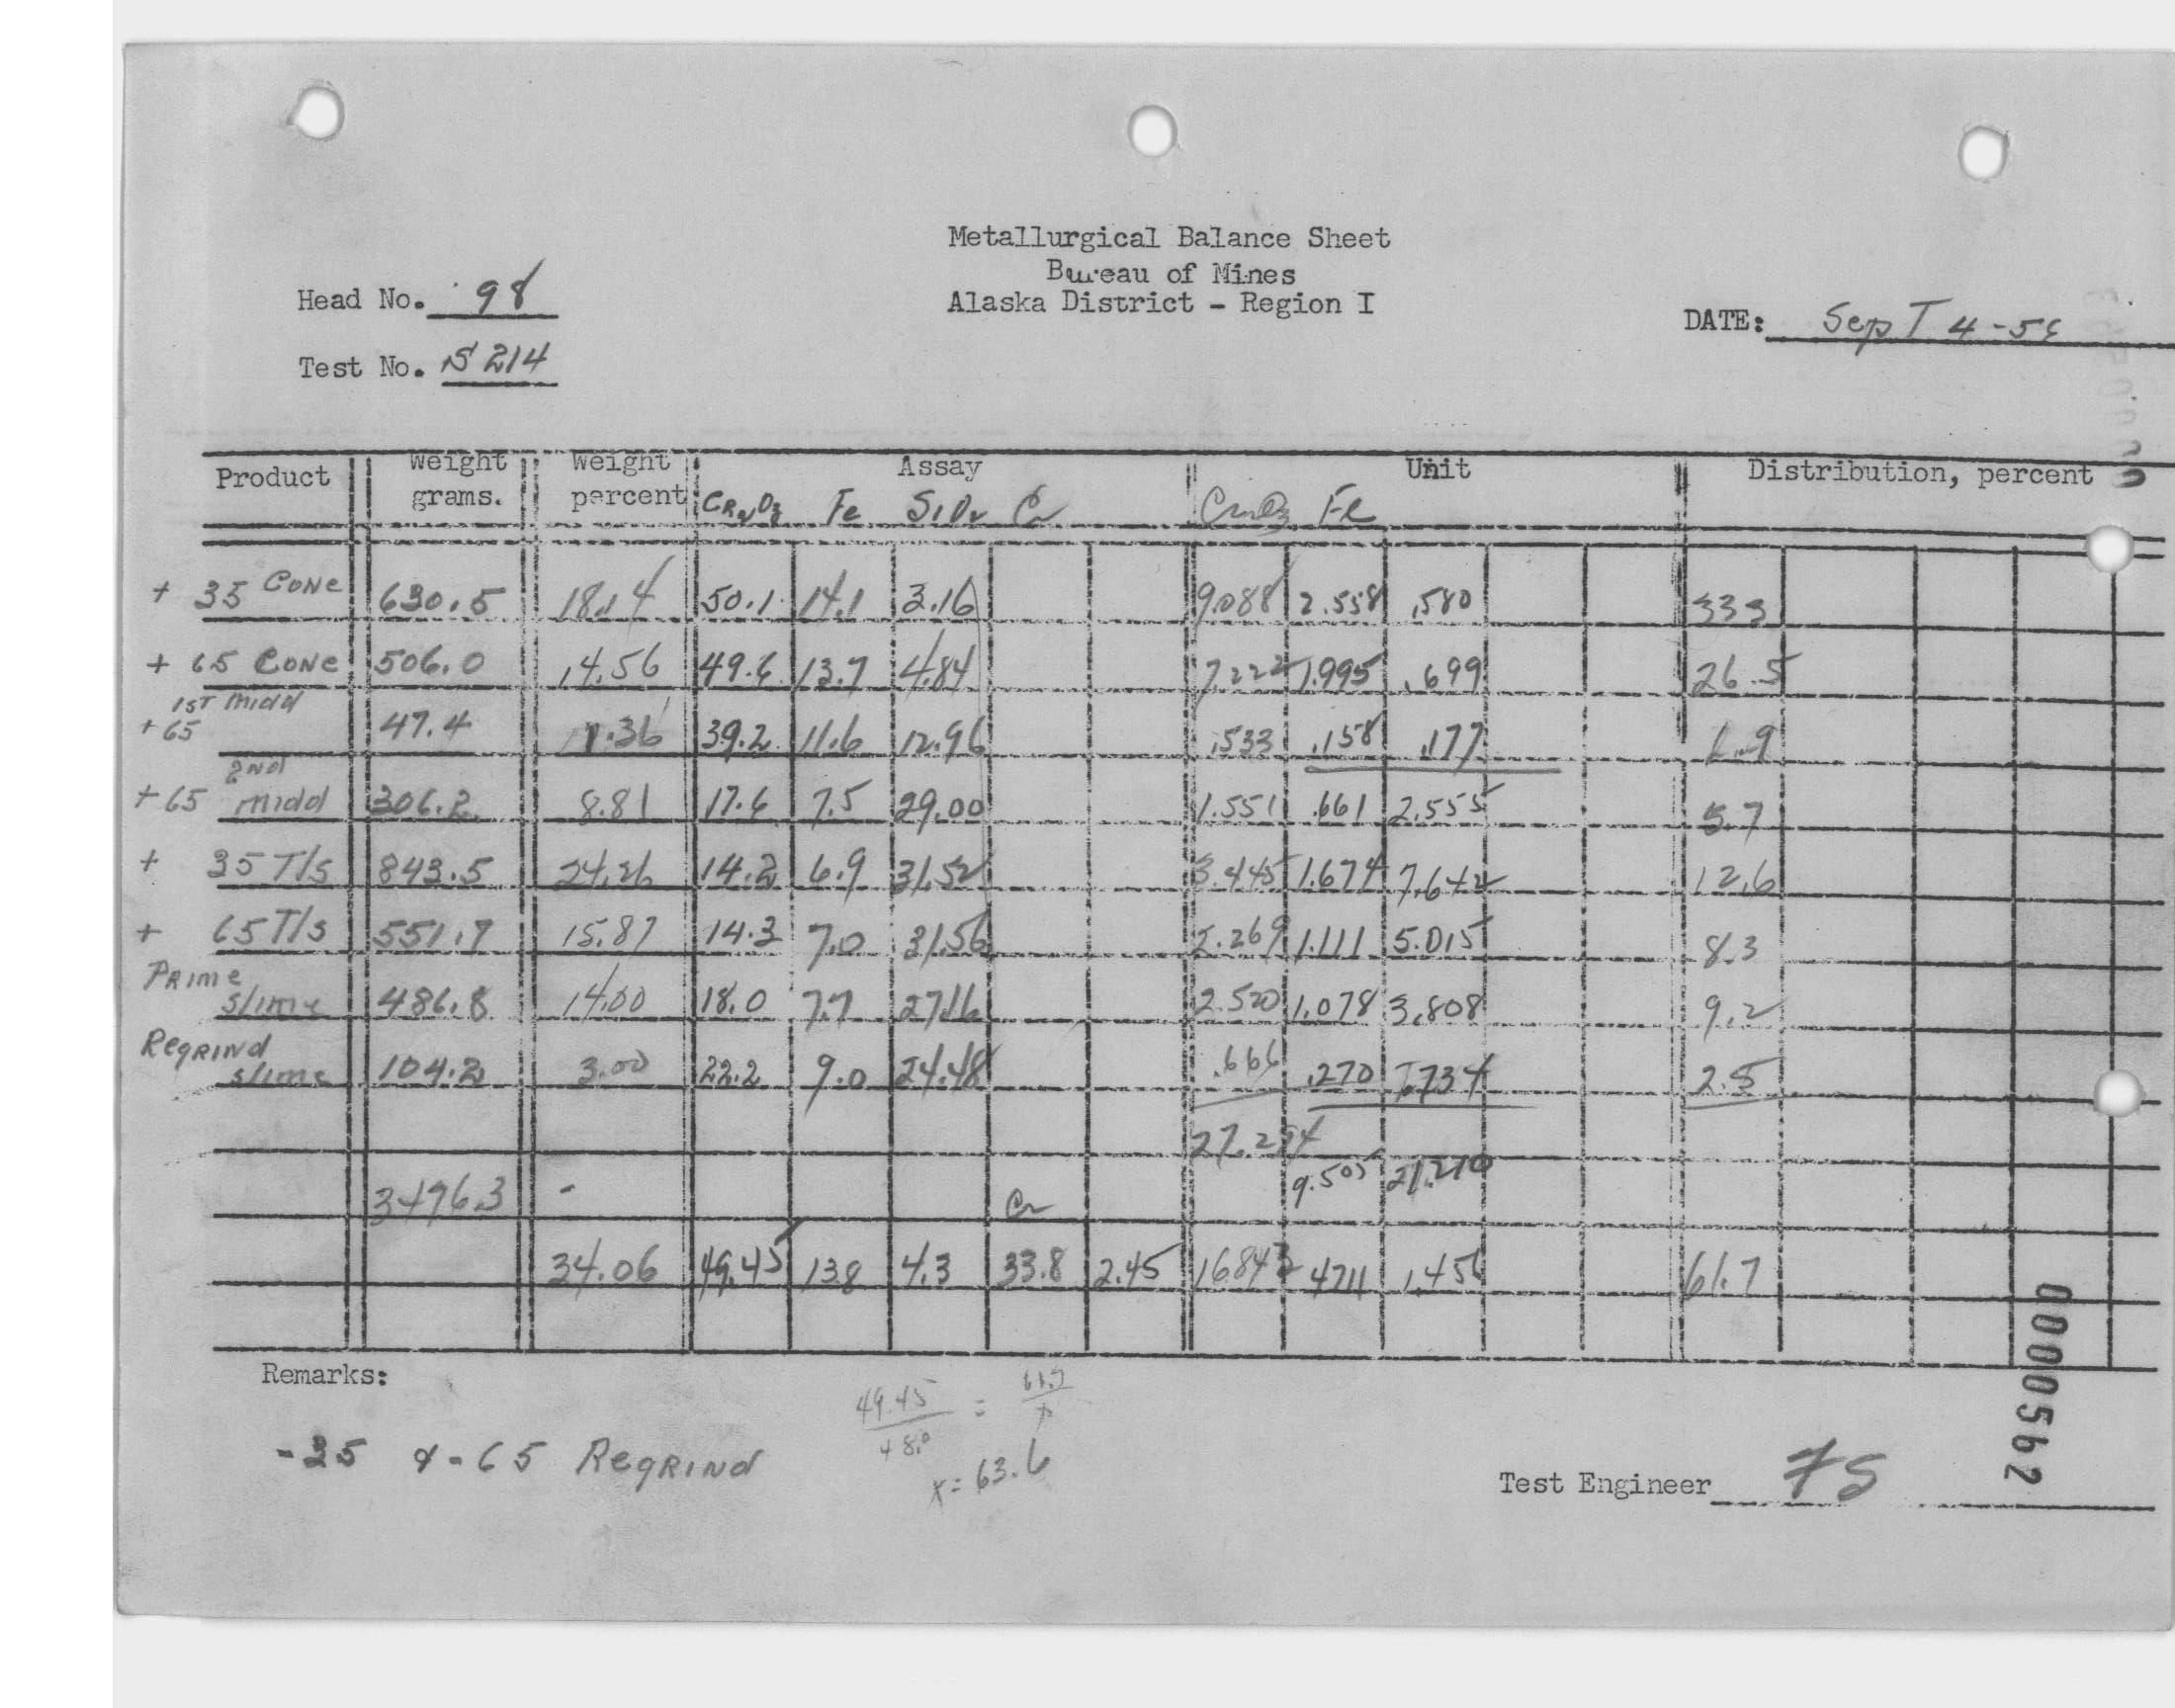 Metallurgical Balance Sheet
Bureau of Mines
Alaska District - Region I
Head No. 98
Test No. S 214
DATE: Sept 4-56
Product Weight grams. Weight percent Assay Unit Distribution, percent
CR2O3 Fe SiO2 Cr Cr2O3 Fe
+ 35 Conc 630.5 18.14 50.1 14.1 3.16 9.088 2.558 .580 33.3
+ 65 Conc 506.0 14.56 49.6 13.7 4.84 7.222 1.995 .699 26.5
1st Midd +65 47.4 1.36 39.2 11.6 12.96 .533 .158 .177 1.9
+65 2nd Midd 306.2 8.81 17.6 7.5 29.00 1.551 .661 2.555 5.7
+ 35 T/s 843.5 24.26 14.2 6.9 31.52 3.445 1.674 7.642 12.6
+ 65 T/s 551.7 15.87 14.3 7.0 31.56 2.269 1.111 5.015 8.3
Prime slime 486.8 14.00 18.0 7.7 27.16 2.520 1.078 3.808 9.2
Regrind slime 104.2 3.00 22.2 9.0 24.48 .666 .270 .734 2.5
27.294
9.505 21.210
3476.3 - Cr
34.06 49.45 13.8 4.3 33.8 2.45 16.843 4711 1.456 61.7
Remarks:
49.45 / 48.0 = 61.7 / x
x = 63.6
-35 & -65 Regrind
Test Engineer 7S
0000562